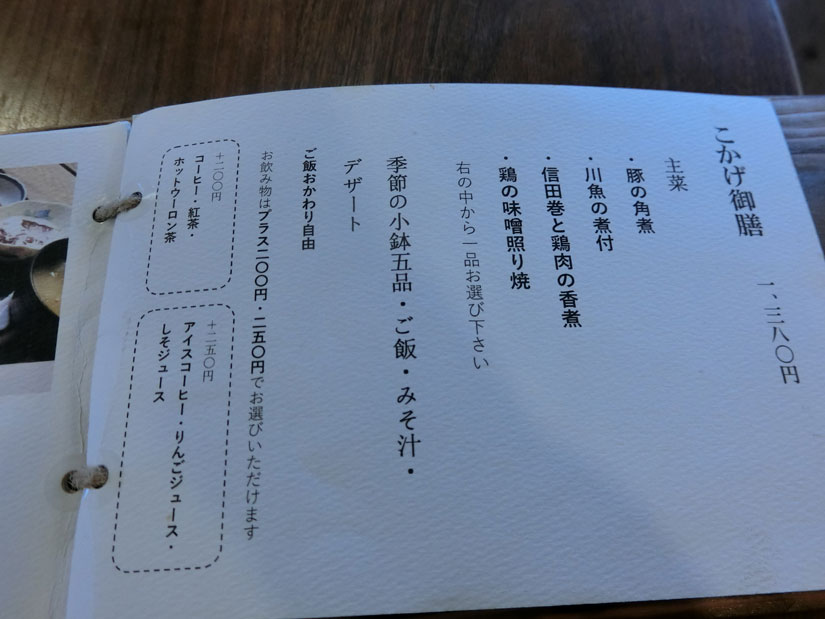 こかげ御膳　一、三八〇円
主菜
・豚の角煮
・川魚の煮付
・信田巻と鶏肉の香煮
・鶏の味噌照り焼
右の中から一品お選び下さい
季節の小鉢五品・ご飯・みそ汁・
デザート
ご飯おかわり自由
お飲み物はプラス二〇〇円・二五〇円でお選びいただけます
＋二〇〇円
コーヒー・紅茶・
ホットウーロン茶
＋二五〇円
アイスコーヒー・りんごジュース・
しそジュース